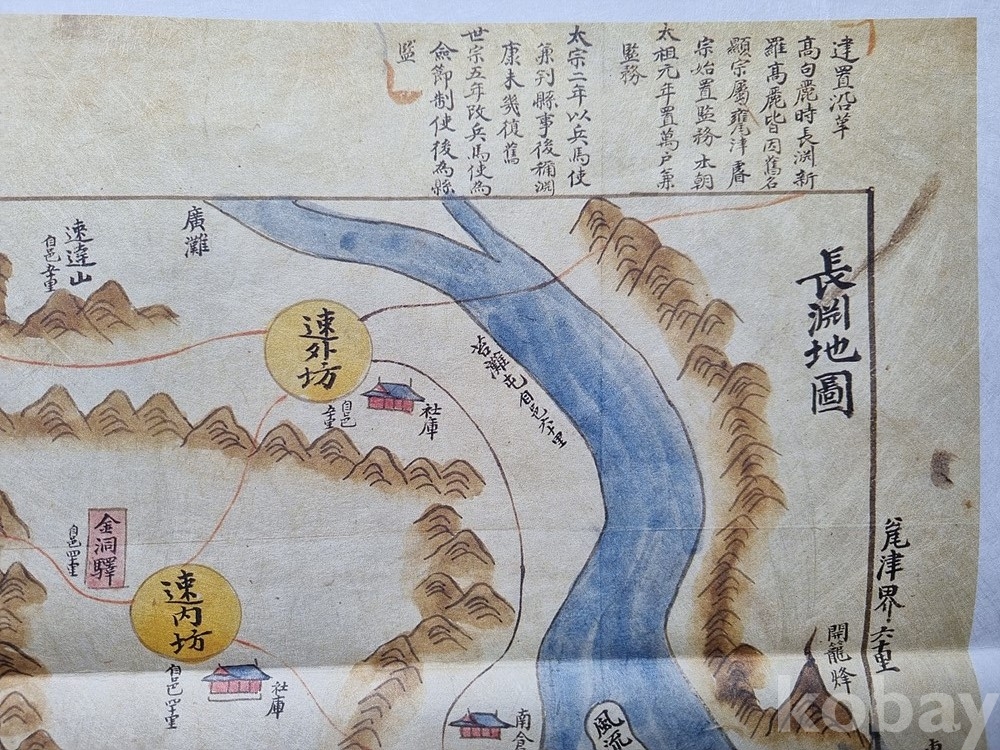 建置沿革
高句麗時長淵新
羅高麗皆因舊名
顯宗屬甕津睿
宗始置監務本朝
太祖元年置萬戶兼
監務
太宗二年以兵馬使
兼判縣事後稱淵
康未幾復舊
世宗五年改兵馬使為
僉節制使後為縣
監
長淵地圖
廣灘
速達山
自邑五十里
速外坊
自邑五十里
社庫
苔灘屯自邑六十里
金洞驛
自邑四十里
速內坊
自邑四十里
社庫
南倉
風流
瓮津界六十里
開龍烽
kobay